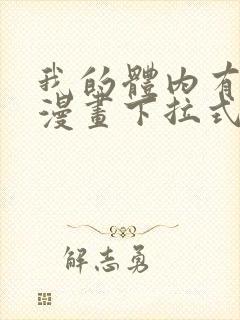 我的體內有
漫畫下拉式
解志勇